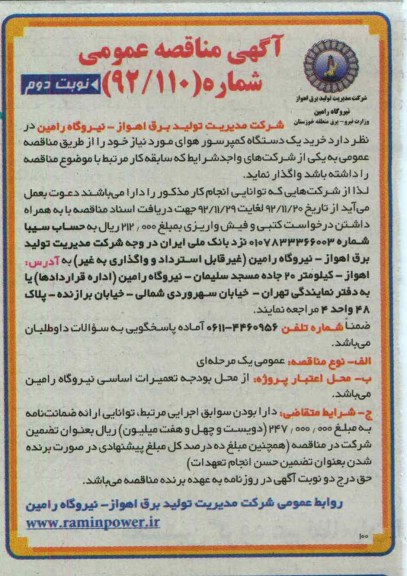 آگهی مناقصه عمومی
شماره (۹۲/۱۱۰) نوبت دوم
شرکت مدیریت تولید برق اهواز
نیروگاه رامین
وزارت نیرو - برق منطقه خوزستان
شرکت مدیریت تولید برق اهواز - نیروگاه رامین در
نظر دارد خرید یک دستگاه کمپرسور هوای مورد نیاز خود را از طریق مناقصه
عمومی به یکی از شرکت‌های واجد شرایط که سابقه کار مرتبط با موضوع مناقصه
را داشته باشد واگذار نماید.
لذا از شرکت‌هایی که توانایی انجام کار مذکور را دارا می‌باشند دعوت بعمل
می‌آید از تاریخ ۹۲/۱۱/۲۰ لغایت ۹۲/۱۱/۲۹ جهت دریافت اسناد مناقصه با به همراه
داشتن درخواست کتبی و فیش واریزی بمبلغ ۲۱۲/۰۰۰ ریال به حساب سیبا
شماره ۰۱۰۷۸۳۳۳۶۶۰۰۳ نزد بانک ملی ایران در وجه شرکت مدیریت تولید
برق اهواز - نیروگاه رامین (غیرقابل استرداد و واگذاری به غیر) به آدرس:
اهواز - کیلومتر ۲۰ جاده مسجد سلیمان - نیروگاه رامین (اداره قراردادها) یا
به دفتر نمایندگی تهران - خیابان سهروردی شمالی - خیابان برازنده - پلاک
۴۸ واحد ۴ مراجعه نمایند.
ضمنا شماره تلفن ۴۴۶۰۹۵۶-۰۶۱۱ آماده پاسخگویی به سؤالات داوطلبان
می‌باشد.
الف- نوع مناقصه: عمومی یک مرحله‌ای
ب- محل اعتبار پروژه: از محل بودجه تعمیرات اساسی نیروگاه رامین
می‌باشد.
ج- شرایط متقاضی: دارا بودن سوابق اجرایی مرتبط، توانایی ارائه ضمانت‌نامه
به مبلغ ۲۴۷/۰۰۰/۰۰۰ (دویست و چهل و هفت میلیون) ریال بعنوان تضمین
شرکت در مناقصه (همچنین مبلغ ده درصد کل مبلغ پیشنهادی در صورت برنده
شدن بعنوان تضمین حسن انجام تعهدات)
حق درج دو نوبت آگهی در روزنامه به عهده برنده مناقصه می‌باشد.
روابط عمومی شرکت مدیریت تولید برق اهواز - نیروگاه رامین
www.raminpower.ir
۱۰۰